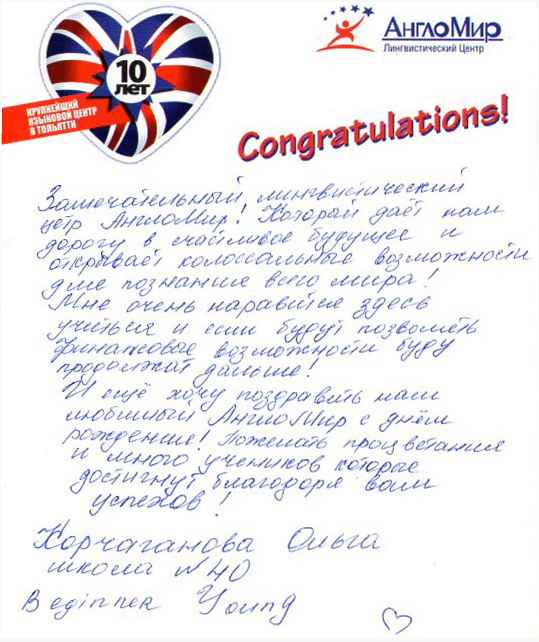 10
лет
КРУПНЕЙШИЙ
ЯЗЫКОВОЙ ЦЕНТР
В ТОЛЬЯТТИ
АнглоМир
Лингвистический Центр
Congratulations!
Замечательный лингвистический
цетр АнглоМир! Которай даёт нам
дорогу в счастливое будущее и
открывает колоссальные возможности
для познания всего мира!
Мне очень наравится здесь
учиться и если будут позволять
финансовые возможности буду
продолжат дальше!
И ещё хочу поздравить наш
любимый АнглоМир с днём
рождения! Пожелать процветания
и много учеников которае
достигнут благодоря вам
успехов!
Корчаганова Ольга
школа №40
Beginner Young